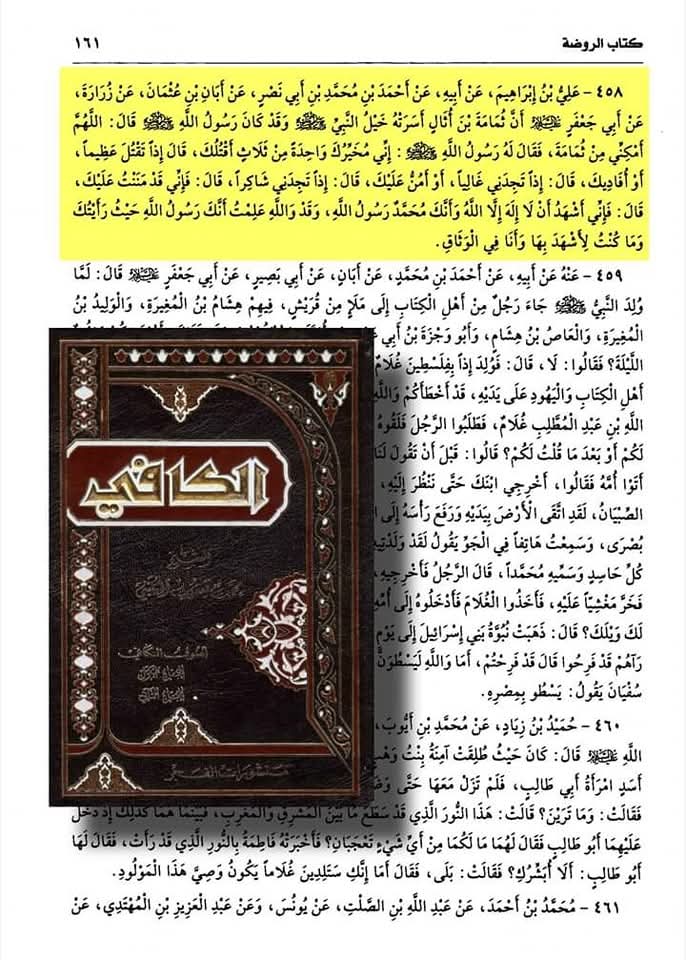 كتاب الروضة
١٦١
٤٥٨ - عَلِيُّ بْنُ إِبْرَاهِيمَ، عَنْ أَبِيهِ، عَنْ أَحْمَدَ بْنِ مُحَمَّدِ بْنِ أَبِي نَصْرٍ، عَنْ أَبَانِ بْنِ عُثْمَانَ، عَنْ زُرَارَةَ،
عَنْ أَبِي جَعْفَرٍ عَلَيْهِ السَّلَامُ أَنَّ ثُمَامَةَ بْنَ أُثَالٍ أَسَرَتْهُ خَيْلُ النَّبِيِّ ﷺ وَقَدْ كَانَ رَسُولُ اللَّهِ ﷺ قَالَ: اللَّهُمَّ
أَمْكِنِّي مِنْ ثُمَامَةَ، فَقَالَ لَهُ رَسُولُ اللَّهِ ﷺ: إِنِّي مُخَيِّرُكَ وَاحِدَةً مِنْ ثَلَاثٍ أَقْتُلُكَ، قَالَ إِذاً تَقْتُلَ عَظِيماً،
أَوْ أُفَادِيكَ، قَالَ: إِذاً تَجِدَنِي غَالِياً، أَوْ أَمُنُّ عَلَيْكَ، قَالَ: إِذاً تَجِدَنِي شَاكِراً، قَالَ: فَإِنِّي قَدْ مَنَنْتُ عَلَيْكَ،
قَالَ: فَإِنِّي أَشْهَدُ أَنْ لَا إِلَهَ إِلَّا اللَّهُ وَأَنَّكَ مُحَمَّدٌ رَسُولُ اللَّهِ، وَقَدْ وَاللَّهِ عَلِمْتُ أَنَّكَ رَسُولُ اللَّهِ حَيْثُ رَأَيْتُكَ
وَمَا كُنْتُ لِأَشْهَدَ بِهَا وَأَنَا فِي الْوَثَاقِ.
٤٥٩ - عَنْهُ عَنْ أَبِيهِ، عَنْ أَحْمَدَ بْنِ مُحَمَّدٍ، عَنْ أَبَانٍ، عَنْ أَبِي بَصِيرٍ، عَنْ أَبِي جَعْفَرٍ عَلَيْهِ السَّلَامُ قَالَ: لَمَّا
وُلِدَ النَّبِيُّ ﷺ جَاءَ رَجُلٌ مِنْ أَهْلِ الْكِتَابِ إِلَى مَلَإٍ مِنْ قُرَيْشٍ، فِيهِمْ هِشَامُ بْنُ الْمُغِيرَةِ، وَالْوَلِيدُ بْنُ
الْمُغِيرَةِ، وَالْعَاصُ بْنُ هِشَامٍ، وَأَبُو وَجْزَةَ بْنُ أَبِي
اللَّيْلَةَ؟ فَقَالُوا: لَا، قَالَ: فَوُلِدَ إِذاً بِفِلَسْطِينَ غُلَامٌ
أَهْلِ الْكِتَابِ وَالْيَهُودِ عَلَى يَدَيْهِ، قَدْ أَخْطَأَكُمْ وَاللَّهِ
اللَّهِ بْنِ عَبْدِ الْمُطَّلِبِ غُلَامٌ، فَطَلَبُوا الرَّجُلَ فَلَقُوهُ
لَكُمْ أَوْ بَعْدَ مَا قُلْتُ لَكُمْ؟ قَالُوا: قَبْلَ أَنْ تَقُولَ لَنَا
أَتَوْا أُمَّهُ فَقَالُوا، أَخْرِجِي ابْنَكِ حَتَّى نَنْظُرَ إِلَيْهِ،
الصِّبْيَانُ، لَقَدِ اتَّقَى الْأَرْضَ بِيَدَيْهِ وَرَفَعَ رَأْسَهُ إِلَى
بُصْرَى، وَسَمِعْتُ هَاتِفاً فِي الْجَوِّ يَقُولُ لَقَدْ وَلَدْتِيهِ
كُلِّ حَاسِدٍ وَسَمِّيهِ مُحَمَّداً، قَالَ الرَّجُلُ فَأَخْرِجِيهِ،
فَخَرَّ مَغْشِيّاً عَلَيْهِ، فَأَخَذُوا الْغُلَامَ فَأَدْخَلُوهُ إِلَى أُمِّهِ
لَكَ وَيْلَكَ؟ قَالَ: ذَهَبَتْ نُبُوَّةُ بَنِي إِسْرَائِيلَ إِلَى يَوْمِ
رَآهُمْ قَدْ فَرِحُوا قَالَ قَدْ فَرِحْتُمْ، أَمَا وَاللَّهِ لَيَسْطُوَنَّ
سُفْيَانَ يَقُولُ: يَسْطُو بِمِصْرِهِ.
٤٦٠ - حُمَيْدُ بْنُ زِيَادٍ، عَنْ مُحَمَّدِ بْنِ أَيُّوبَ،
اللَّهِ عَلَيْهِ السَّلَامُ قَالَ: كَانَ حَيْثُ طُلِقَتْ آمِنَةُ بِنْتُ وَهْبٍ
أَسَدٍ امْرَأَةُ أَبِي طَالِبٍ، فَلَمْ تَزَلْ مَعَهَا حَتَّى
فَقَالَتْ: وَمَا تَرَيْنَ؟ قَالَتْ: هَذَا النُّورَ الَّذِي قَدْ سَطَعَ مَا بَيْنَ الْمَشْرِقِ وَالْمَغْرِبِ، فَبَيْنَمَا هُمَا كَذَلِكَ إِذْ دَخَلَ
عَلَيْهِمَا أَبُو طَالِبٍ فَقَالَ لَهُمَا مَا لَكُمَا مِنْ أَيِّ شَيْءٍ تَعْجَبَانِ؟ فَأَخْبَرَتْهُ فَاطِمَةُ بِالنُّورِ الَّذِي قَدْ رَأَتْ، فَقَالَ لَهَا
أَبُو طَالِبٍ: أَلَا أُبَشِّرُكِ؟ فَقَالَتْ: بَلَى، فَقَالَ أَمَا إِنَّكِ سَتَلِدِينَ غُلَاماً يَكُونُ وَصِيَّ هَذَا الْمَوْلُودِ.
٤٦١ - مُحَمَّدُ بْنُ أَحْمَدَ، عَنْ عَبْدِ اللَّهِ بْنِ الصَّلْتِ، عَنْ يُونُسَ، وَعَنْ عَبْدِ الْعَزِيزِ بْنِ الْمُهْتَدِي، عَنْ
الكافي
منشورات الفجر